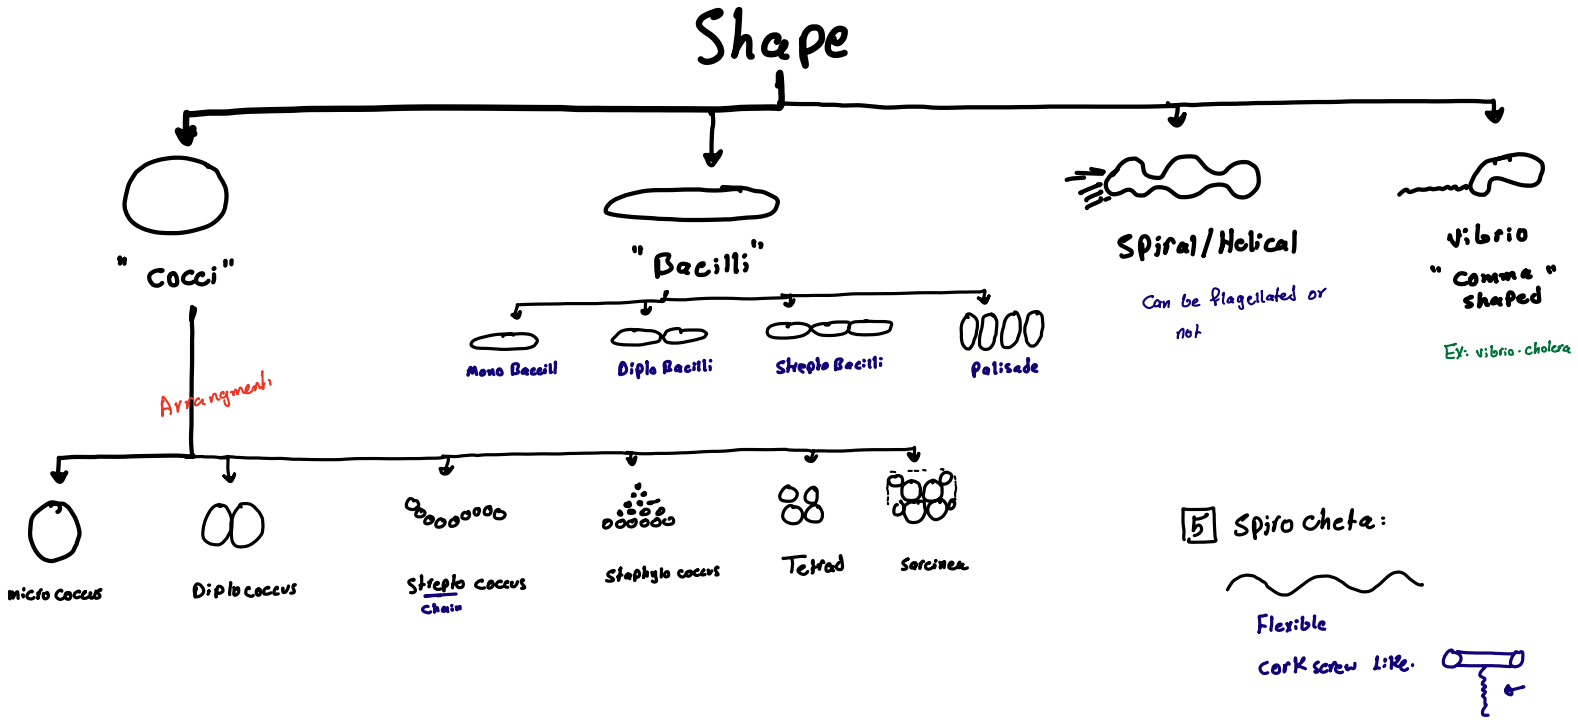 Shape
"Cocci"
"Bacilli"
Spiral/Helical
Vibrio
"Comma"
shaped
Can be flagellated or
not
Ex: vibrio-cholera
Mono Baccill
Diplo Bacilli
Strepto Bacilli
Palisade
Arrangment:
micro coccus
Diplo coccus
Strepto coccus
chain
Staphylo coccus
Tetrad
Sarcinea
5 Spiro cheta:
Flexible
cork screw Like.